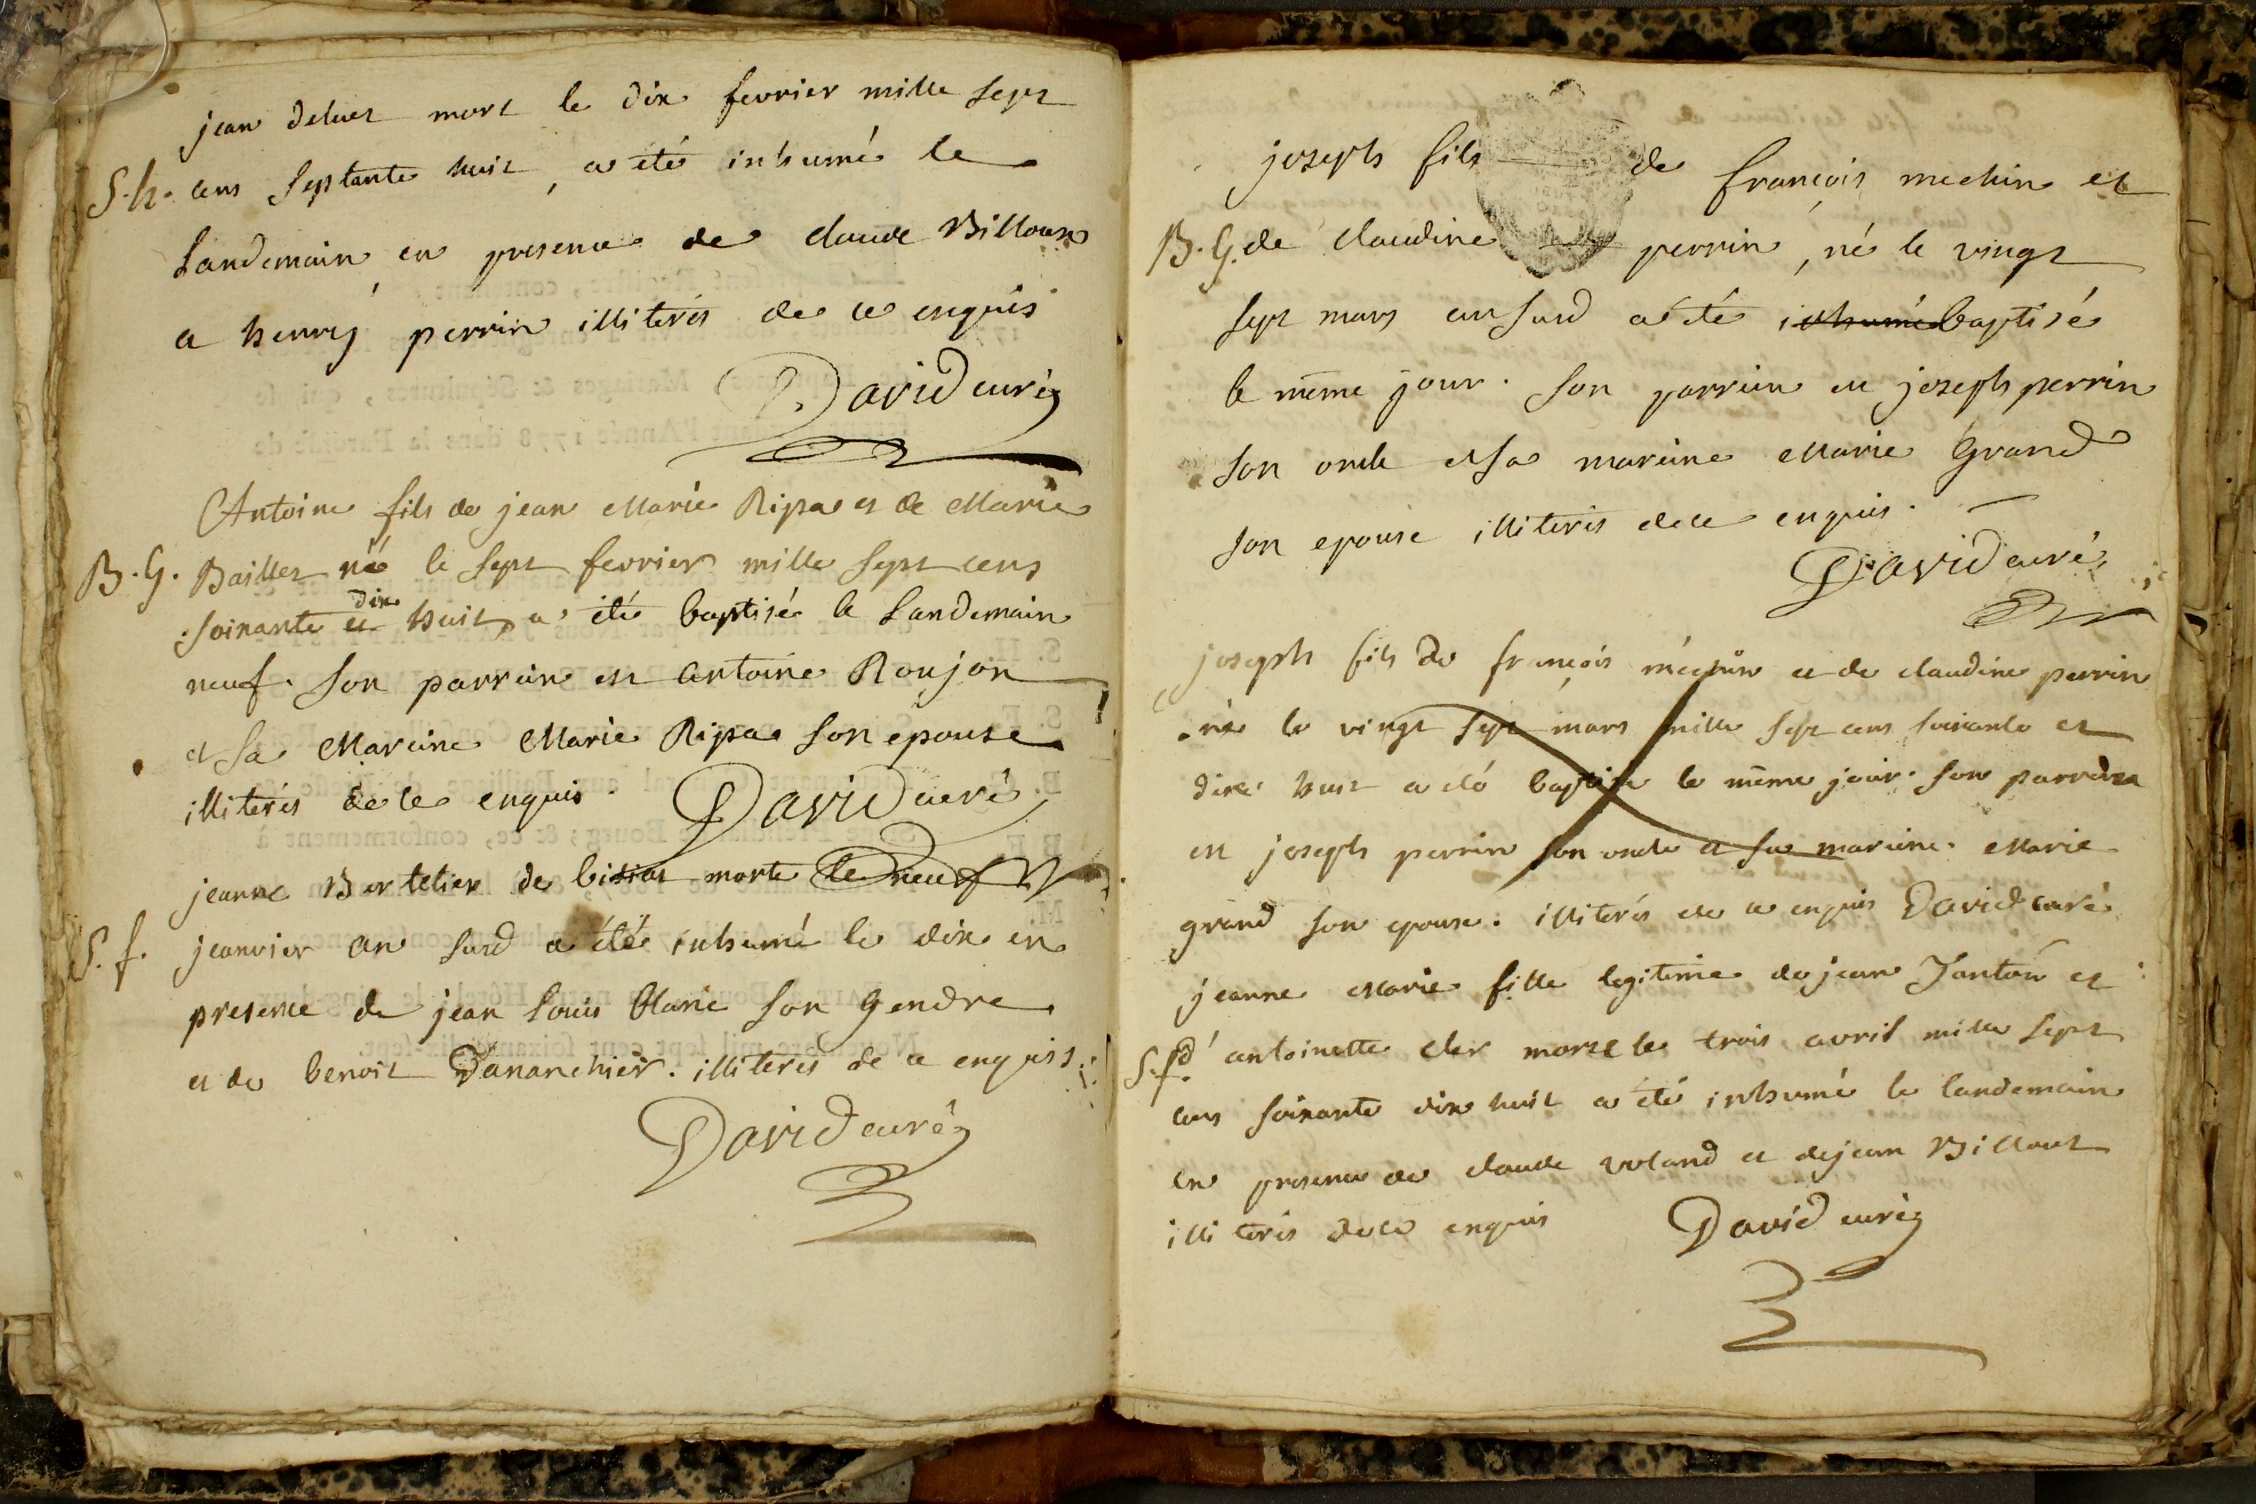 jean deluet mort le dix fevrier mille sept
S. h. cens septante huit, a été inhumé le
landemain en presence de claude Billoux
a henry perrin illiterés de ce enquis
David curé
Antoine fils de jean Marie Ripa et de Marie
B. G. Baillet né le sept fevrier mille sept cens
soixante et dix huit, a été baptisé le landemain
neuf. son parrein est antoine Roujon
et sa Mareine Marie Ripa son épouse
illiterés de ce enquis. David curé
jeanne Bertelier de morte le neuf
S. f. jeanvier an surd a été inhumé le dix en
presence de jean louis blanc son gendre
et de benoit Dananchier. illiterés de ce enquis
David curé
joseph fils de françois mechin et
B. G. de claudine perrin, né le vingt
sept mars an surd a été inhumé baptisé
le même jour. son parrein est joseph perrin
son oncle et sa mareine Marie Grand
son epouse illiterés de ce enquis.
David curé
joseph fils de françois mechin et de claudine perrin
né le vingt sept mars mille sept cens soixante et
dixe huit a été baptisé le même jour. son parrein
est joseph perrin son oncle et sa mareine. Marie
grand son epouse. illiterés de ce enquis David curé
jeanne Marie fille legitime de jean Janton et
S. f. d'antoinette cler morte le trois avril mille sept
cens soixante dix huit a été inhumé le landemain
en presence de claude voland et de jean Billout
illiterés de ce enquis David curé